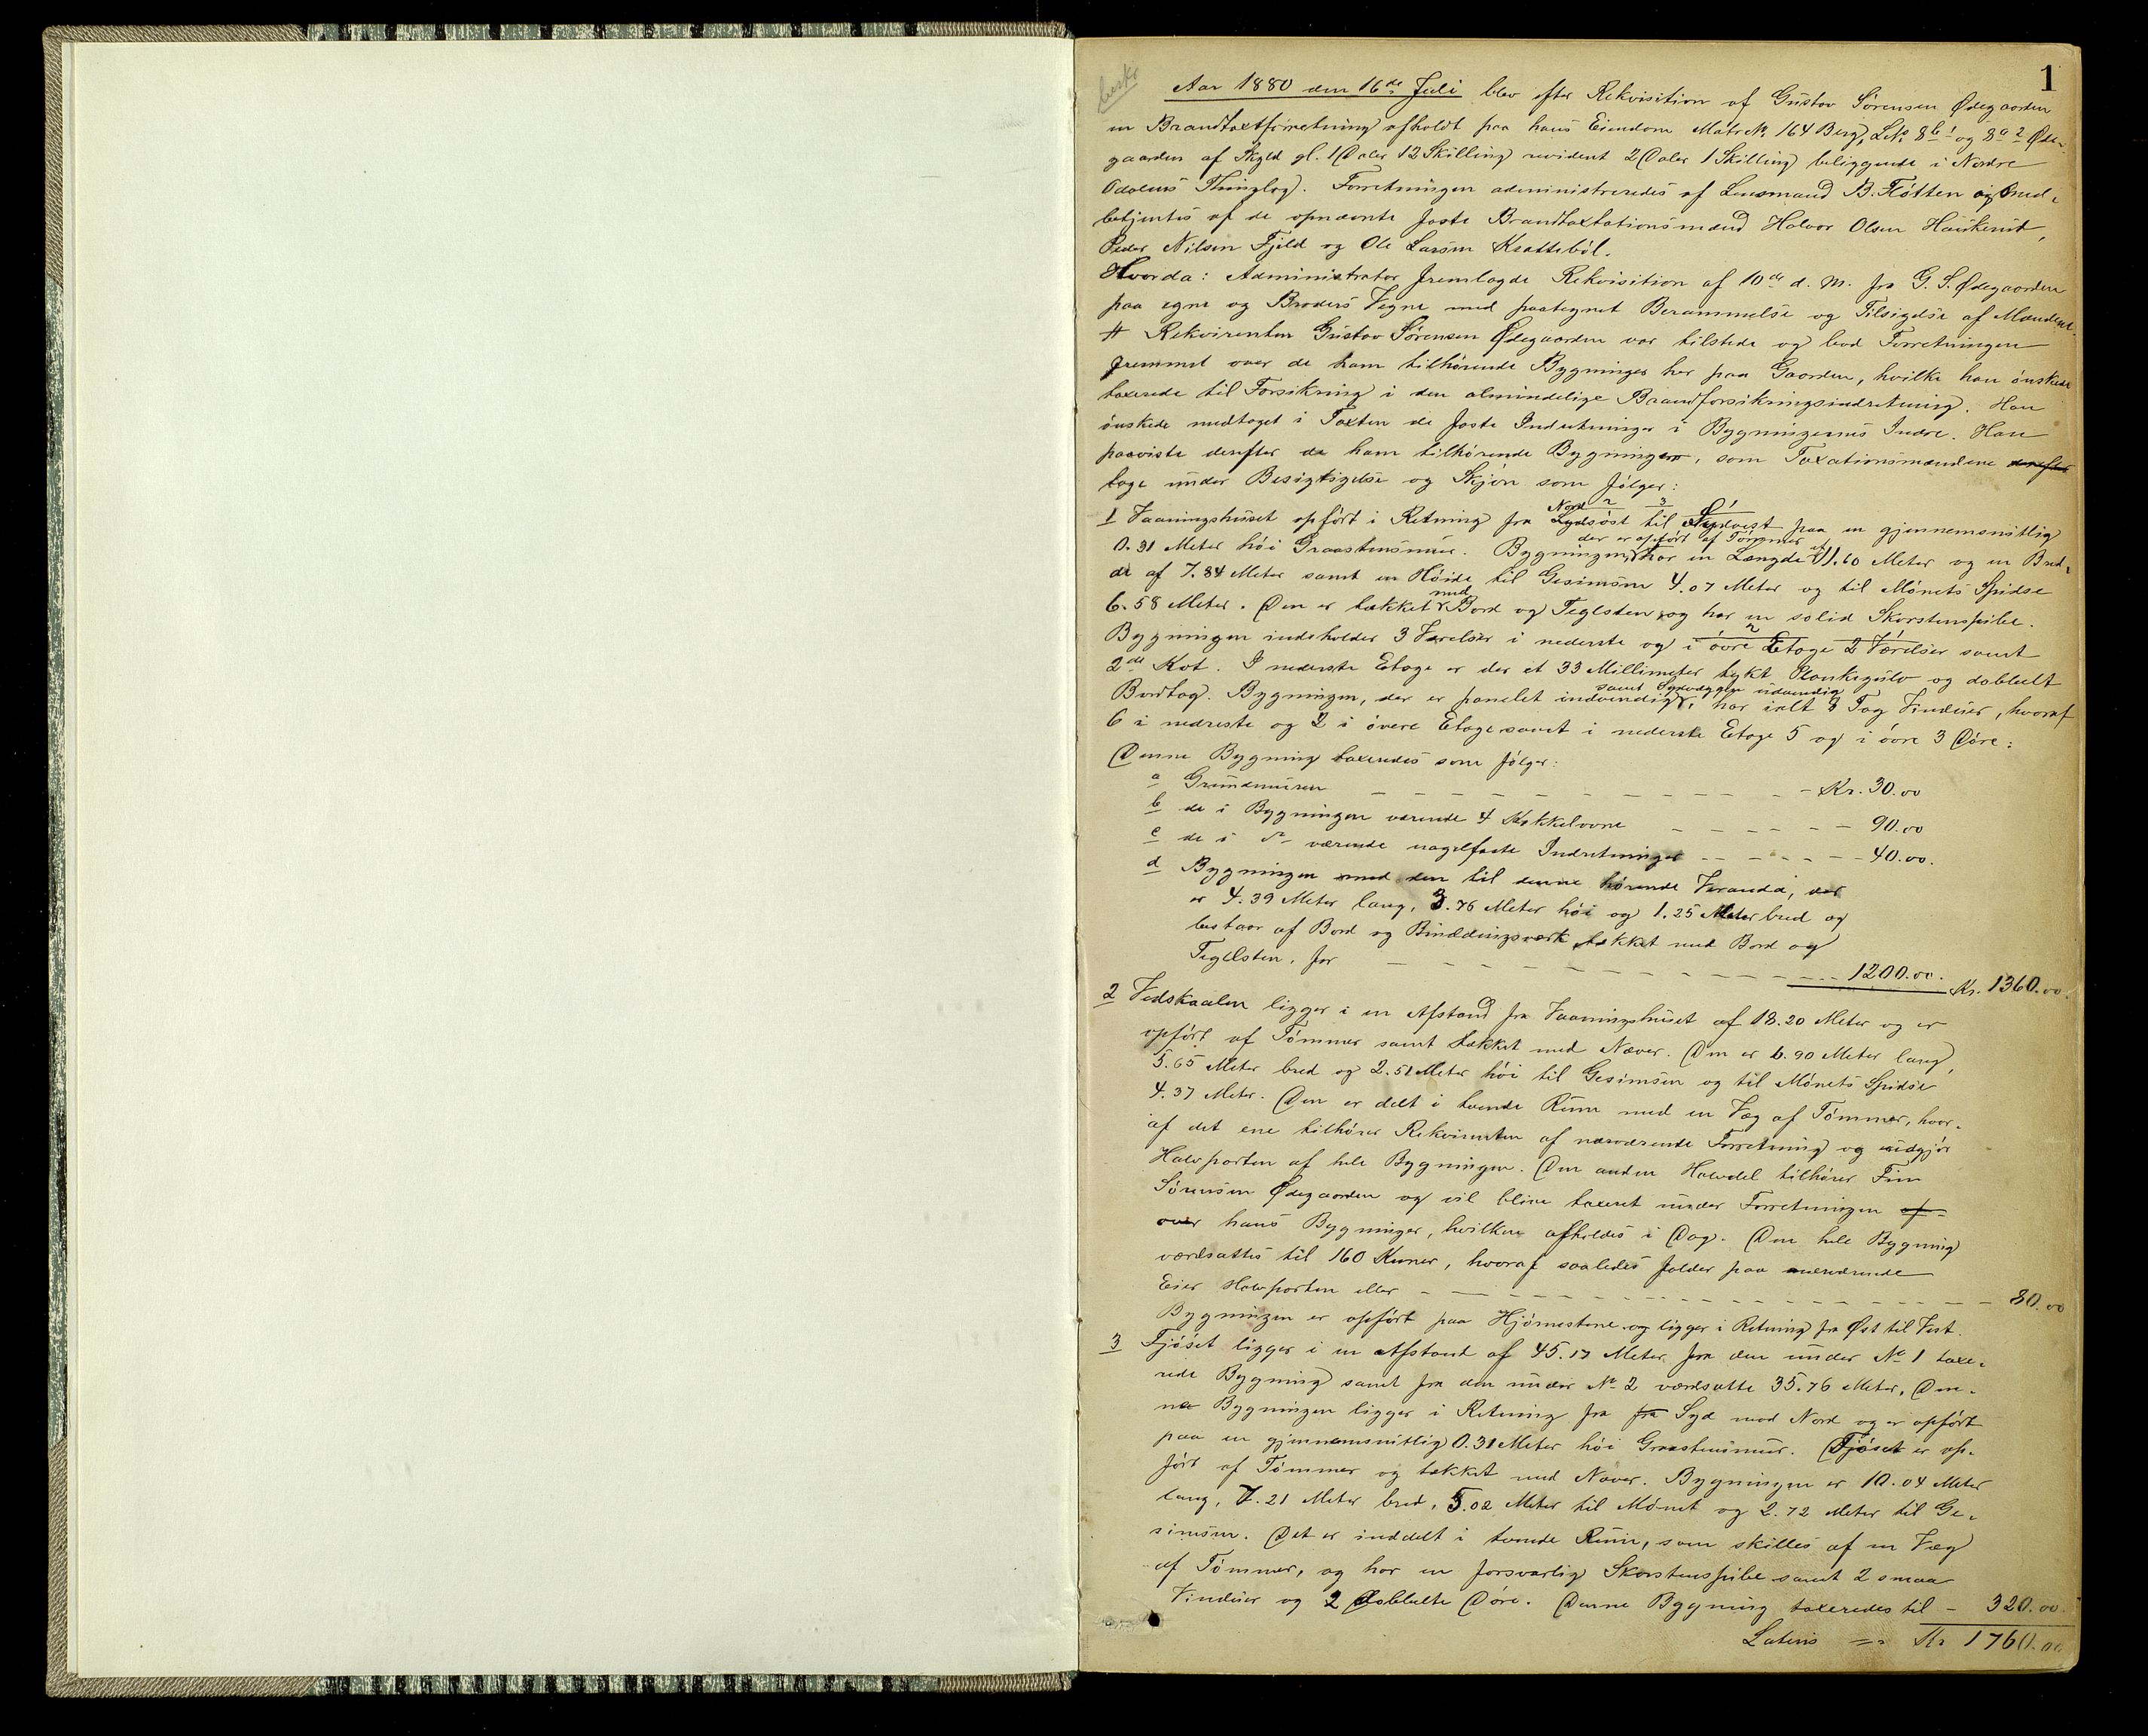 1
Aar 1880 den 16de Juli blev efter Rekvisition af Gustav Sørensen Ødegaarden
en Brandtaxtforretning afholdt paa hans Eiendom Matr No. 164 Berg, L.No. 8 b 1 og 8 a 2 Øde-
gaarden af Skyld gl. 1 Daler 12 Skilling revideret 2 Daler 1 Skilling beliggende i Nordre
Odalens Thinglag. Forretningen administreredes af Lensmand B. Fløtten og med-
betjentes af de opnævnte faste Brandtaxtationsmænd Halvor Olsen Haukerud,
Peder Nilsen Fjeld og Ole Larsen Krattebøl.
Hvorda: Administrator fremlagde Rekvisition af 10de d. M. fra G. S. Ødegaarden
paa egne og Broders Vegne med paategnet Berammelse og Tilsigelse af Mændene.
# Rekvirenten Gustav Sørensen Ødegaarden var tilstede og bad Forretningen
fremmet over de ham tilhørende Bygninger her paa Gaarden, hvilke han ønskede
taxerede til Forsikring i den almindelige Brandforsikringsindretning. Han
ønskede medtaget i Taxten de faste Indretninger i Bygningernes Indre. Han
paaviste derefter de ham tilhørende Bygninger, som Taxationsmændene derefter
toge under Besigtigelse og Skjøn som følger:
Nord 2 3 1
1 Vaaningshuset opført i Retning fra Sydøst til Nordvest paa en gjennemsnitlig
der er opført af Tømmer
0.31 Meter høi Graastensmur. Bygningen, har en Længde af 11.60 Meter og en Bred-
de af 7.84 Meter samt en Høide til Gesimsen 4.07 Meter og til Mønets Spidse
med
6.58 Meter. Den er tækket Bord og Teglsten og har en solid Skorstenspibe.
Bygningen indeholder 3 Værelser i nederste og i øvre Etage 2 Værelser samt
2de Kot. I nederste Etage er der et 33 Millimeter tykt Plankegulv og dobbelt
samt Sydvæggen udvendig
Bordtag. Bygningen, der er panelet indvendig, har ialt 8 Fag Vinduer, hvoraf
6 i nederste og 2 i øvere Etage samt i nederste Etage 5 og i øvre 3 Døre:
Denne Bygning taxeredes som følger:
a Grundmuren - - - Kr. 30.00
b de i Bygningen værende 4 Kakkelovne - - - 90.00
c de i do værende nagelfaste Indretninger - - - 40.00.
d Bygningen med den til denne hørende Veranda, der
er 4.39 Meter lang, 3.76 Meter høi og 1.25 Meter bred og
bestaar af Bord og Bindingsværk tækket med Bord og
Teglsten, for - - - 1200.00. Kr. 1360.00.
2 Vedskaalen ligger i en Afstand fra Vaaningshuset af 18.20 Meter og er
opført af Tømmer samt tækket med Næver. Den er 6.90 Meter lang,
5.65 Meter bred og 2.51 Meter høi til Gesimsen og til Mønets Spidse
4.37 Meter. Den er delt i tvende Rum med en Væg af Tømmer, hvor-
af det ene tilhører Rekvirenten af nærværende Forretning og udgjør
Halvparten af hele Bygningen. Den anden Halvdel tilhører Finn
Sørensen Ødegaarden og vil blive taxeret under Forretningen af
over hans Bygninger, hvilken afholdes i Dag. Den hele Bygning
værdsattes til 160 Kroner, hvoraf saaledes falder paa nærværende
Eier Halvparten eller - - - 80.00
Bygningen er opført paa Hjørnestene og ligger i Retning fra Øst til Vest.
3 Fjøset ligger i en Afstand af 45.17 Meter fra den under No 1 taxe-
rede Bygning samt fra den under No 2 værdsatte 35.76 Meter. Den-
ne Bygningen ligger i Retning fra fra Syd mod Nord og er opført
paa en gjennemsnitlig 0.31 Meter høi Graastensmur. Fjøset er op-
ført af Tømmer og tækket med Næver. Bygningen er 10.04 Meter
lang, 7.21 Meter bred, 5.02 Meter til Mønet og 2.72 Meter til Ge-
simsen. Det er inddelt i tvende Rum, som skilles af en Væg
af Tømmer, og har en forsvarlig Skorstenspibe samt 2 smaa
Vinduer og 2 dobbelte Døre. Denne Bygning taxeredes til - 320.00
Lateris = Kr 1760.00